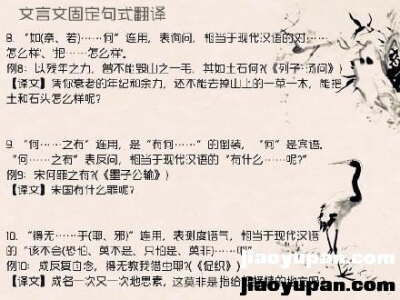 文言文固定句式翻译
8. “如(奈、若)……何”连用，表询问，相当于现代汉语的“对……
怎么样、把……怎么样。
例8：以残年之力，曾不能毁山之一毛，其如土石何?(《列子·汤问》)
【译文】凭你衰老的年纪和余力，还不能去掉山上的一草一木，能把
土和石头怎么样呢?
9. “何……之有”连用，是“有何……”的倒装，“何”是宾语，
“何……之有”表反问，相当于现代汉语的“有什么……呢?”
例9：宋何罪之有?(《墨子公输》)
【译文】宋国有什么罪呢?
10. “得无……乎(耶、邪)”连用，表测度语气，相当于现代汉语
的“该不会(恐怕、莫不是、只怕是、莫非……吧”
例10：成反复自念，得无教我猎虫耶?(《促织》)
【译文】成名一次又一次地思素，这莫非是指给
jiaoyupan.com
jiaoyupan.com